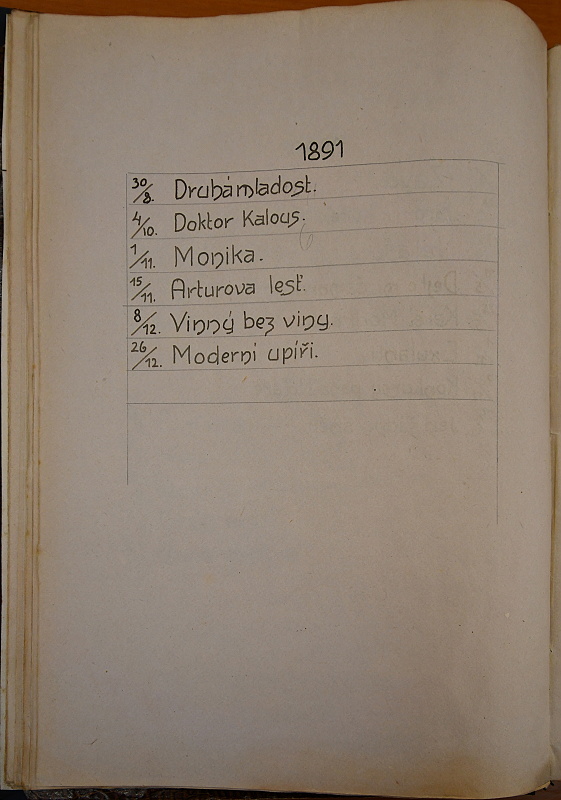 1891
30/8. Druhá mladost.
4/10. Doktor Kalous.
1/11. Monika.
15/11. Arturova lest.
8/12. Vinný bez viny.
26/12. Moderní upíři.